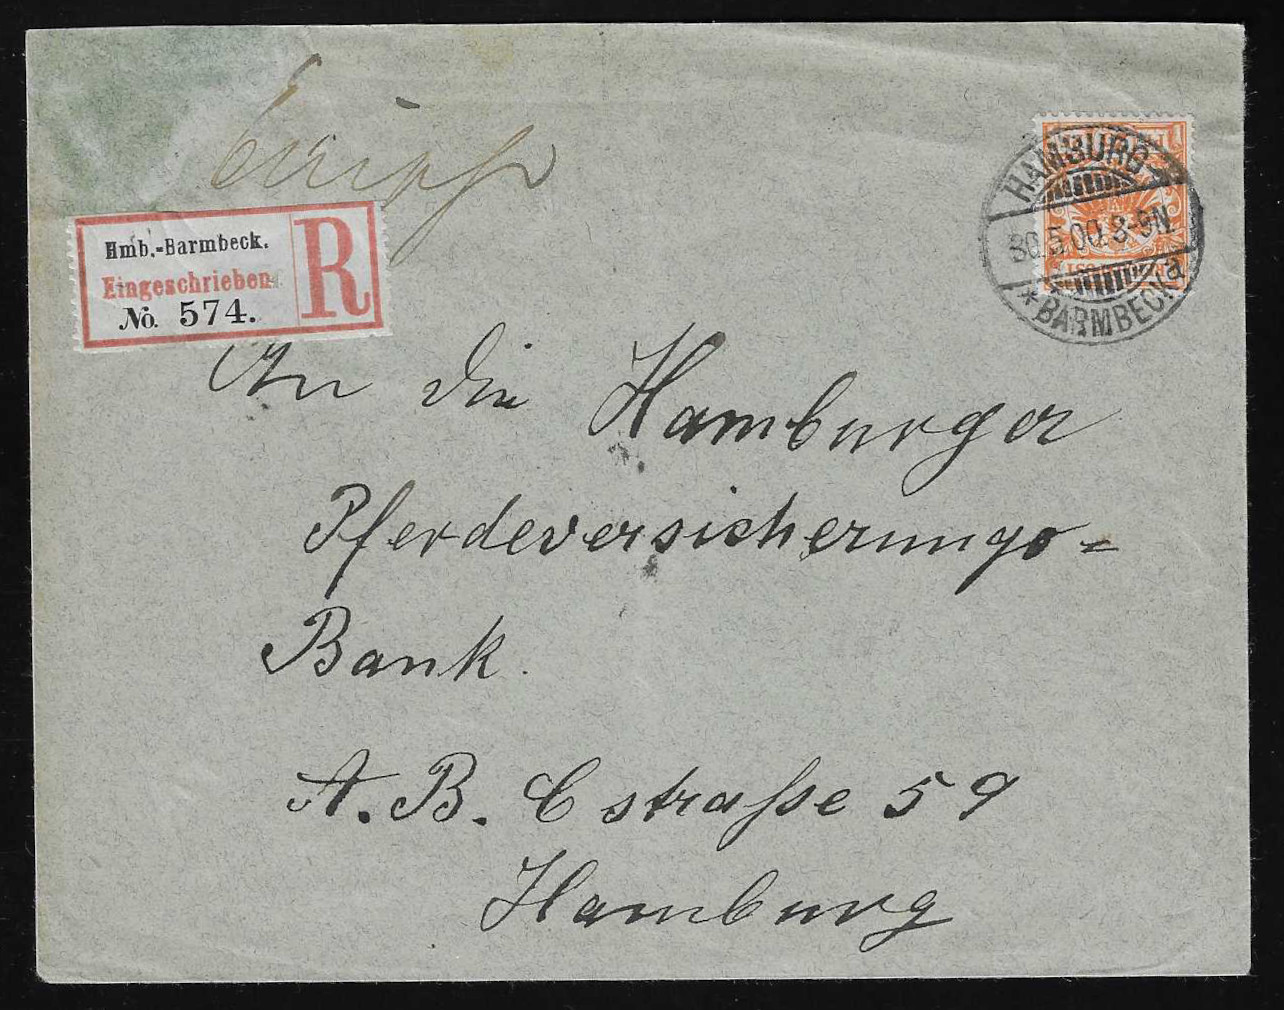 Hmb.-Barmbeck.
Eingeschrieben
No. 574.
R
HAMBURG
30.5.00.8-9N.
* BARMBECK a
An die Hamburger
Pferdeversicherungs-
Bank.
A. B. C straße 59
Hamburg